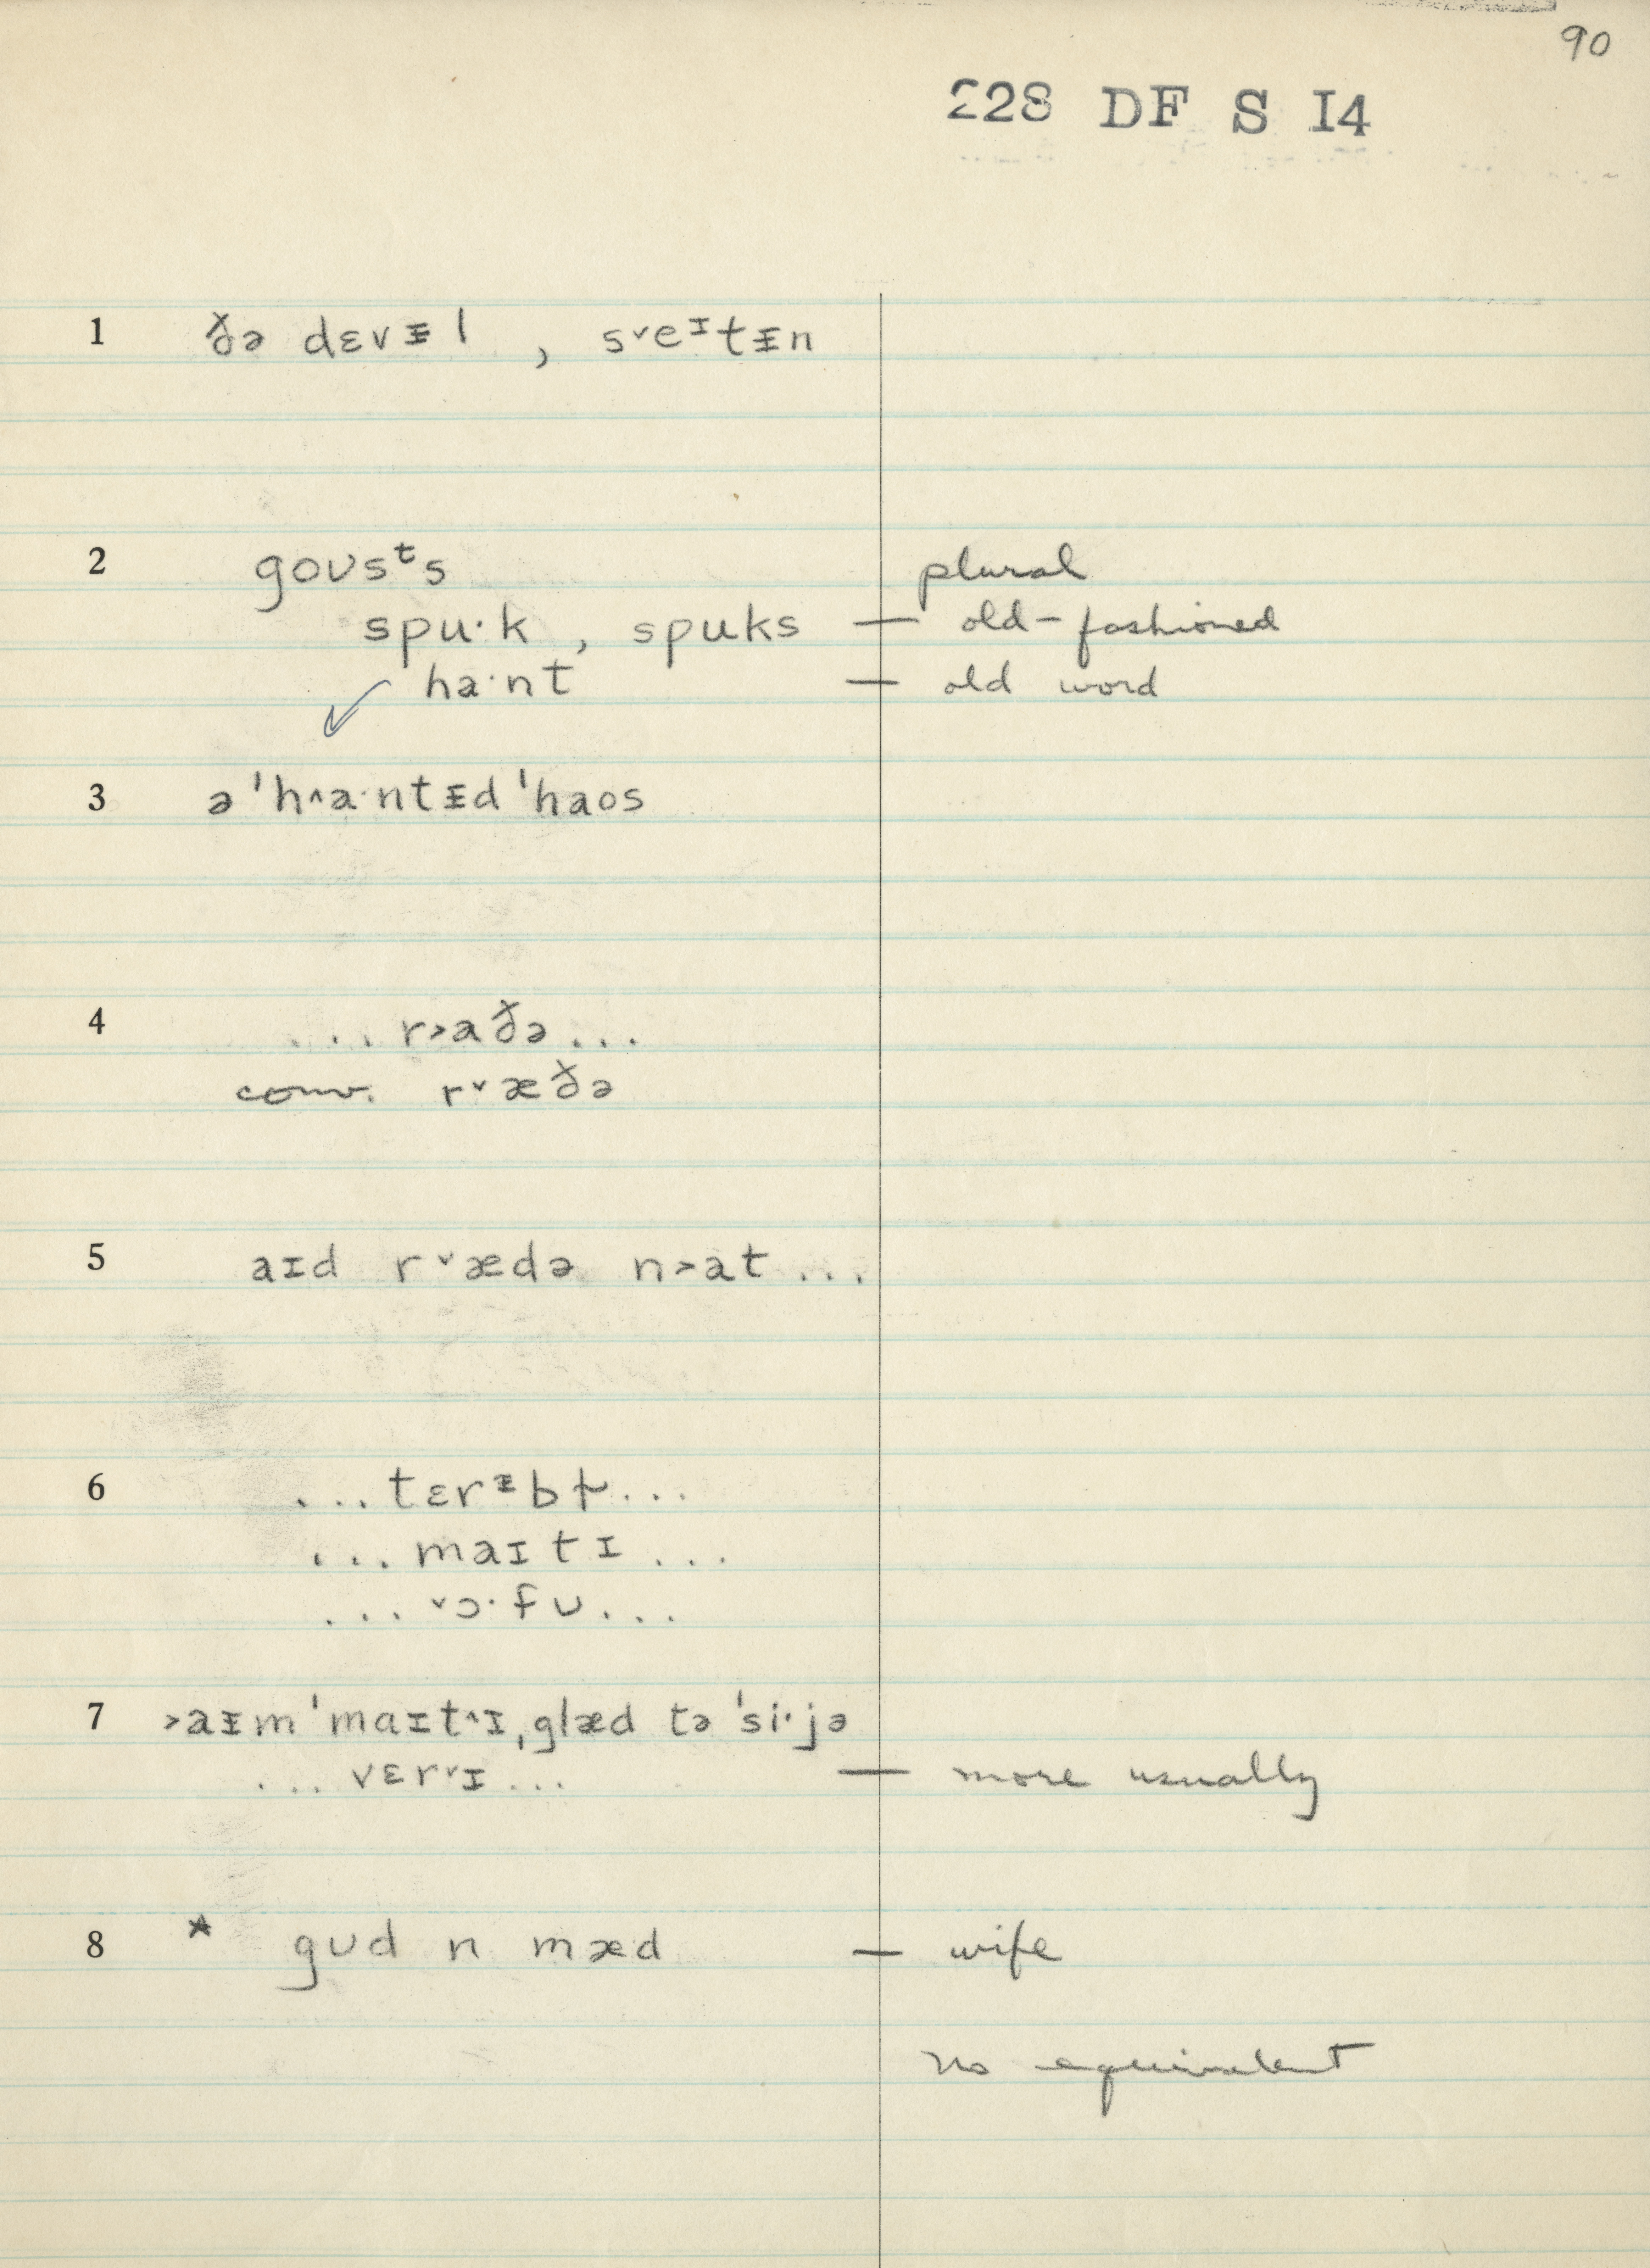 90
228 DF S I4
1 ðə dɛvᵻl , s˅eᶦtᵻn
2 goʊsᵗs plural
spu·k , spuks — old-fashioned
ha·nt — old word
3 ə ˈh˄a·ntᵻd ˈhaos
4 ... r˃aðə ...
conv. r˅æðə
5 aɪd r˅ædə n˃at ...
6 ... tɛrᵻbɫ ...
... maɪtɪ ...
... ˅ɔ·fʊ ...
7 ˃aᵻm ˈmaɪt˄ɪ ˌglæd tə ˈsi·jə
... vɛr˅ɪ ... — more usually
8 * gʊd n mæd — wife
no equivalent